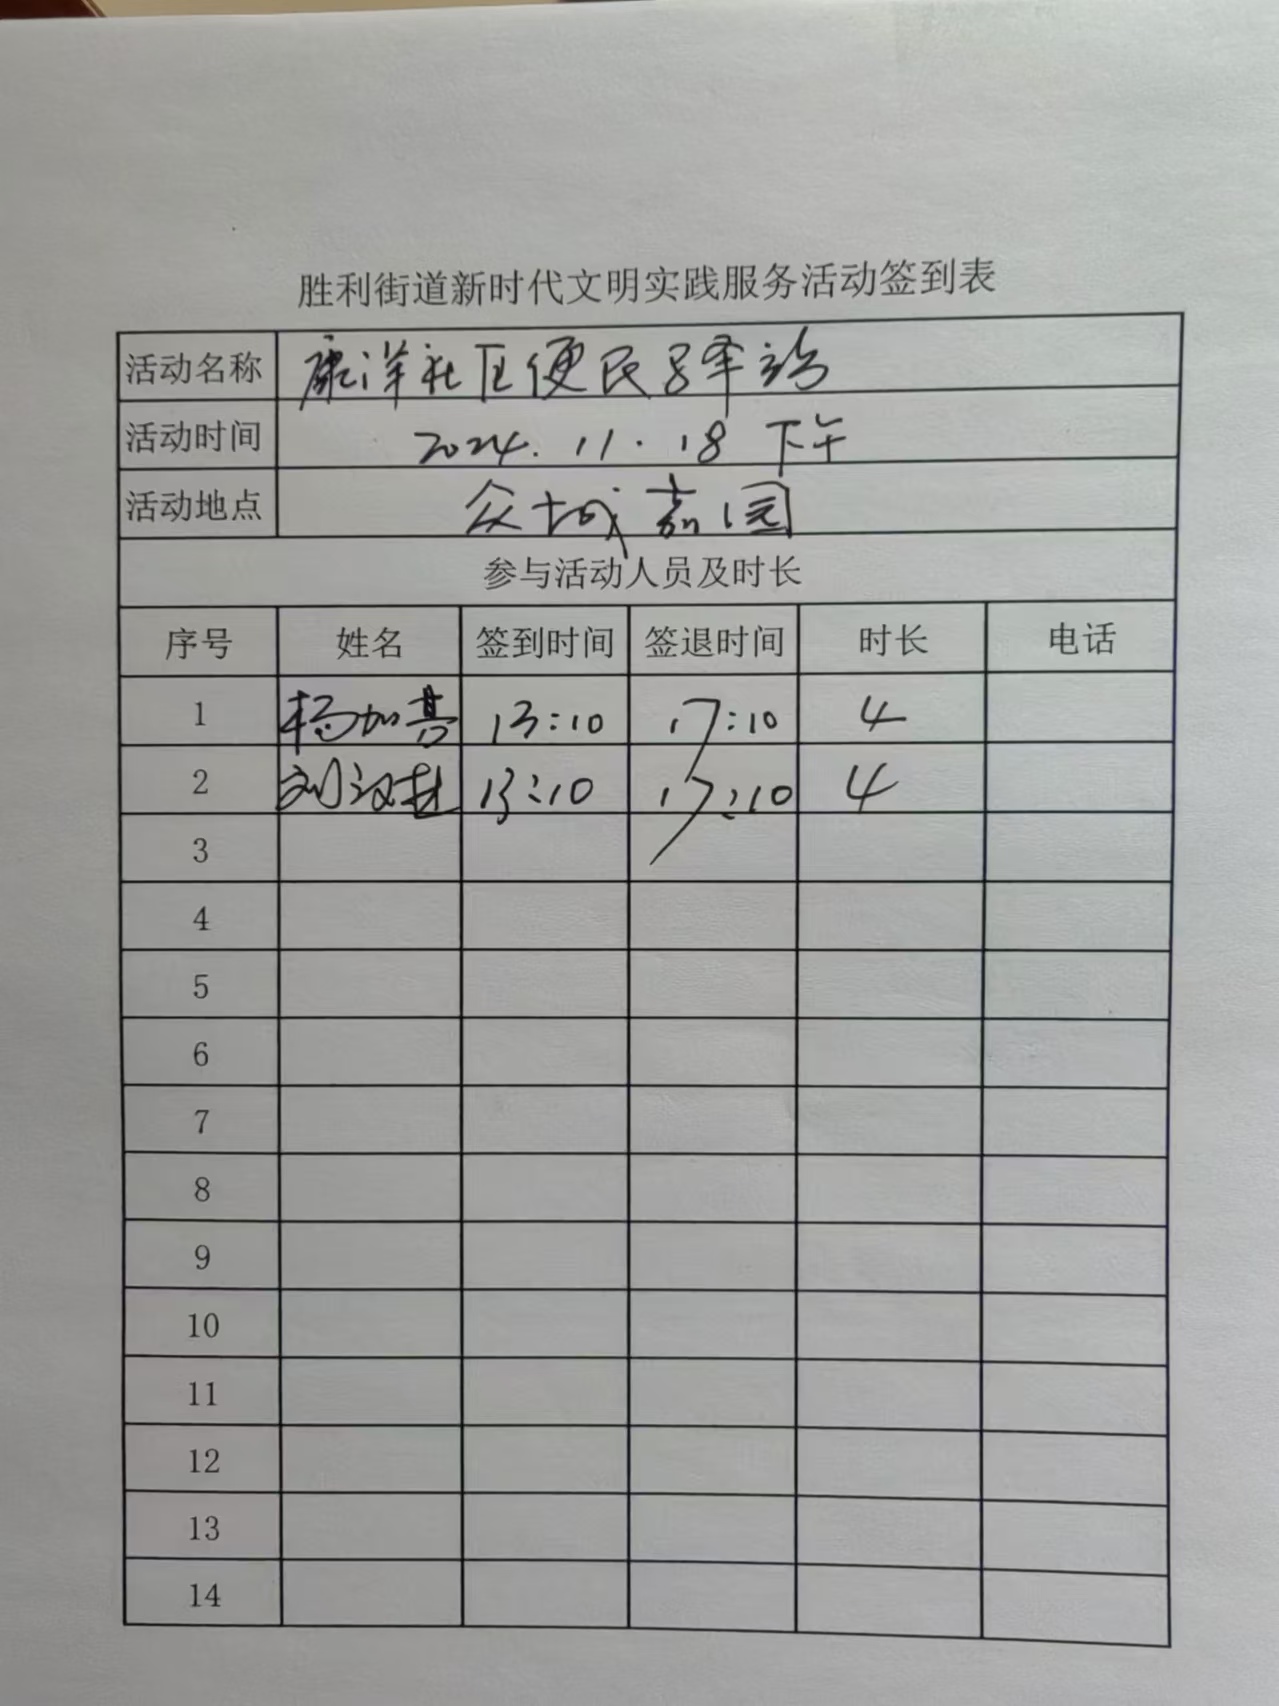 胜利街道新时代文明实践服务活动签到表
活动名称 康洋社区便民驿站
活动时间 2024.11.18 下午
活动地点 众城嘉园
参与活动人员及时长
序号 姓名 签到时间 签退时间 时长 电话
1 杨加喜 13:10 17:10 4
2 刘汉 13:10 17:10 4
3
4
5
6
7
8
9
10
11
12
13
14